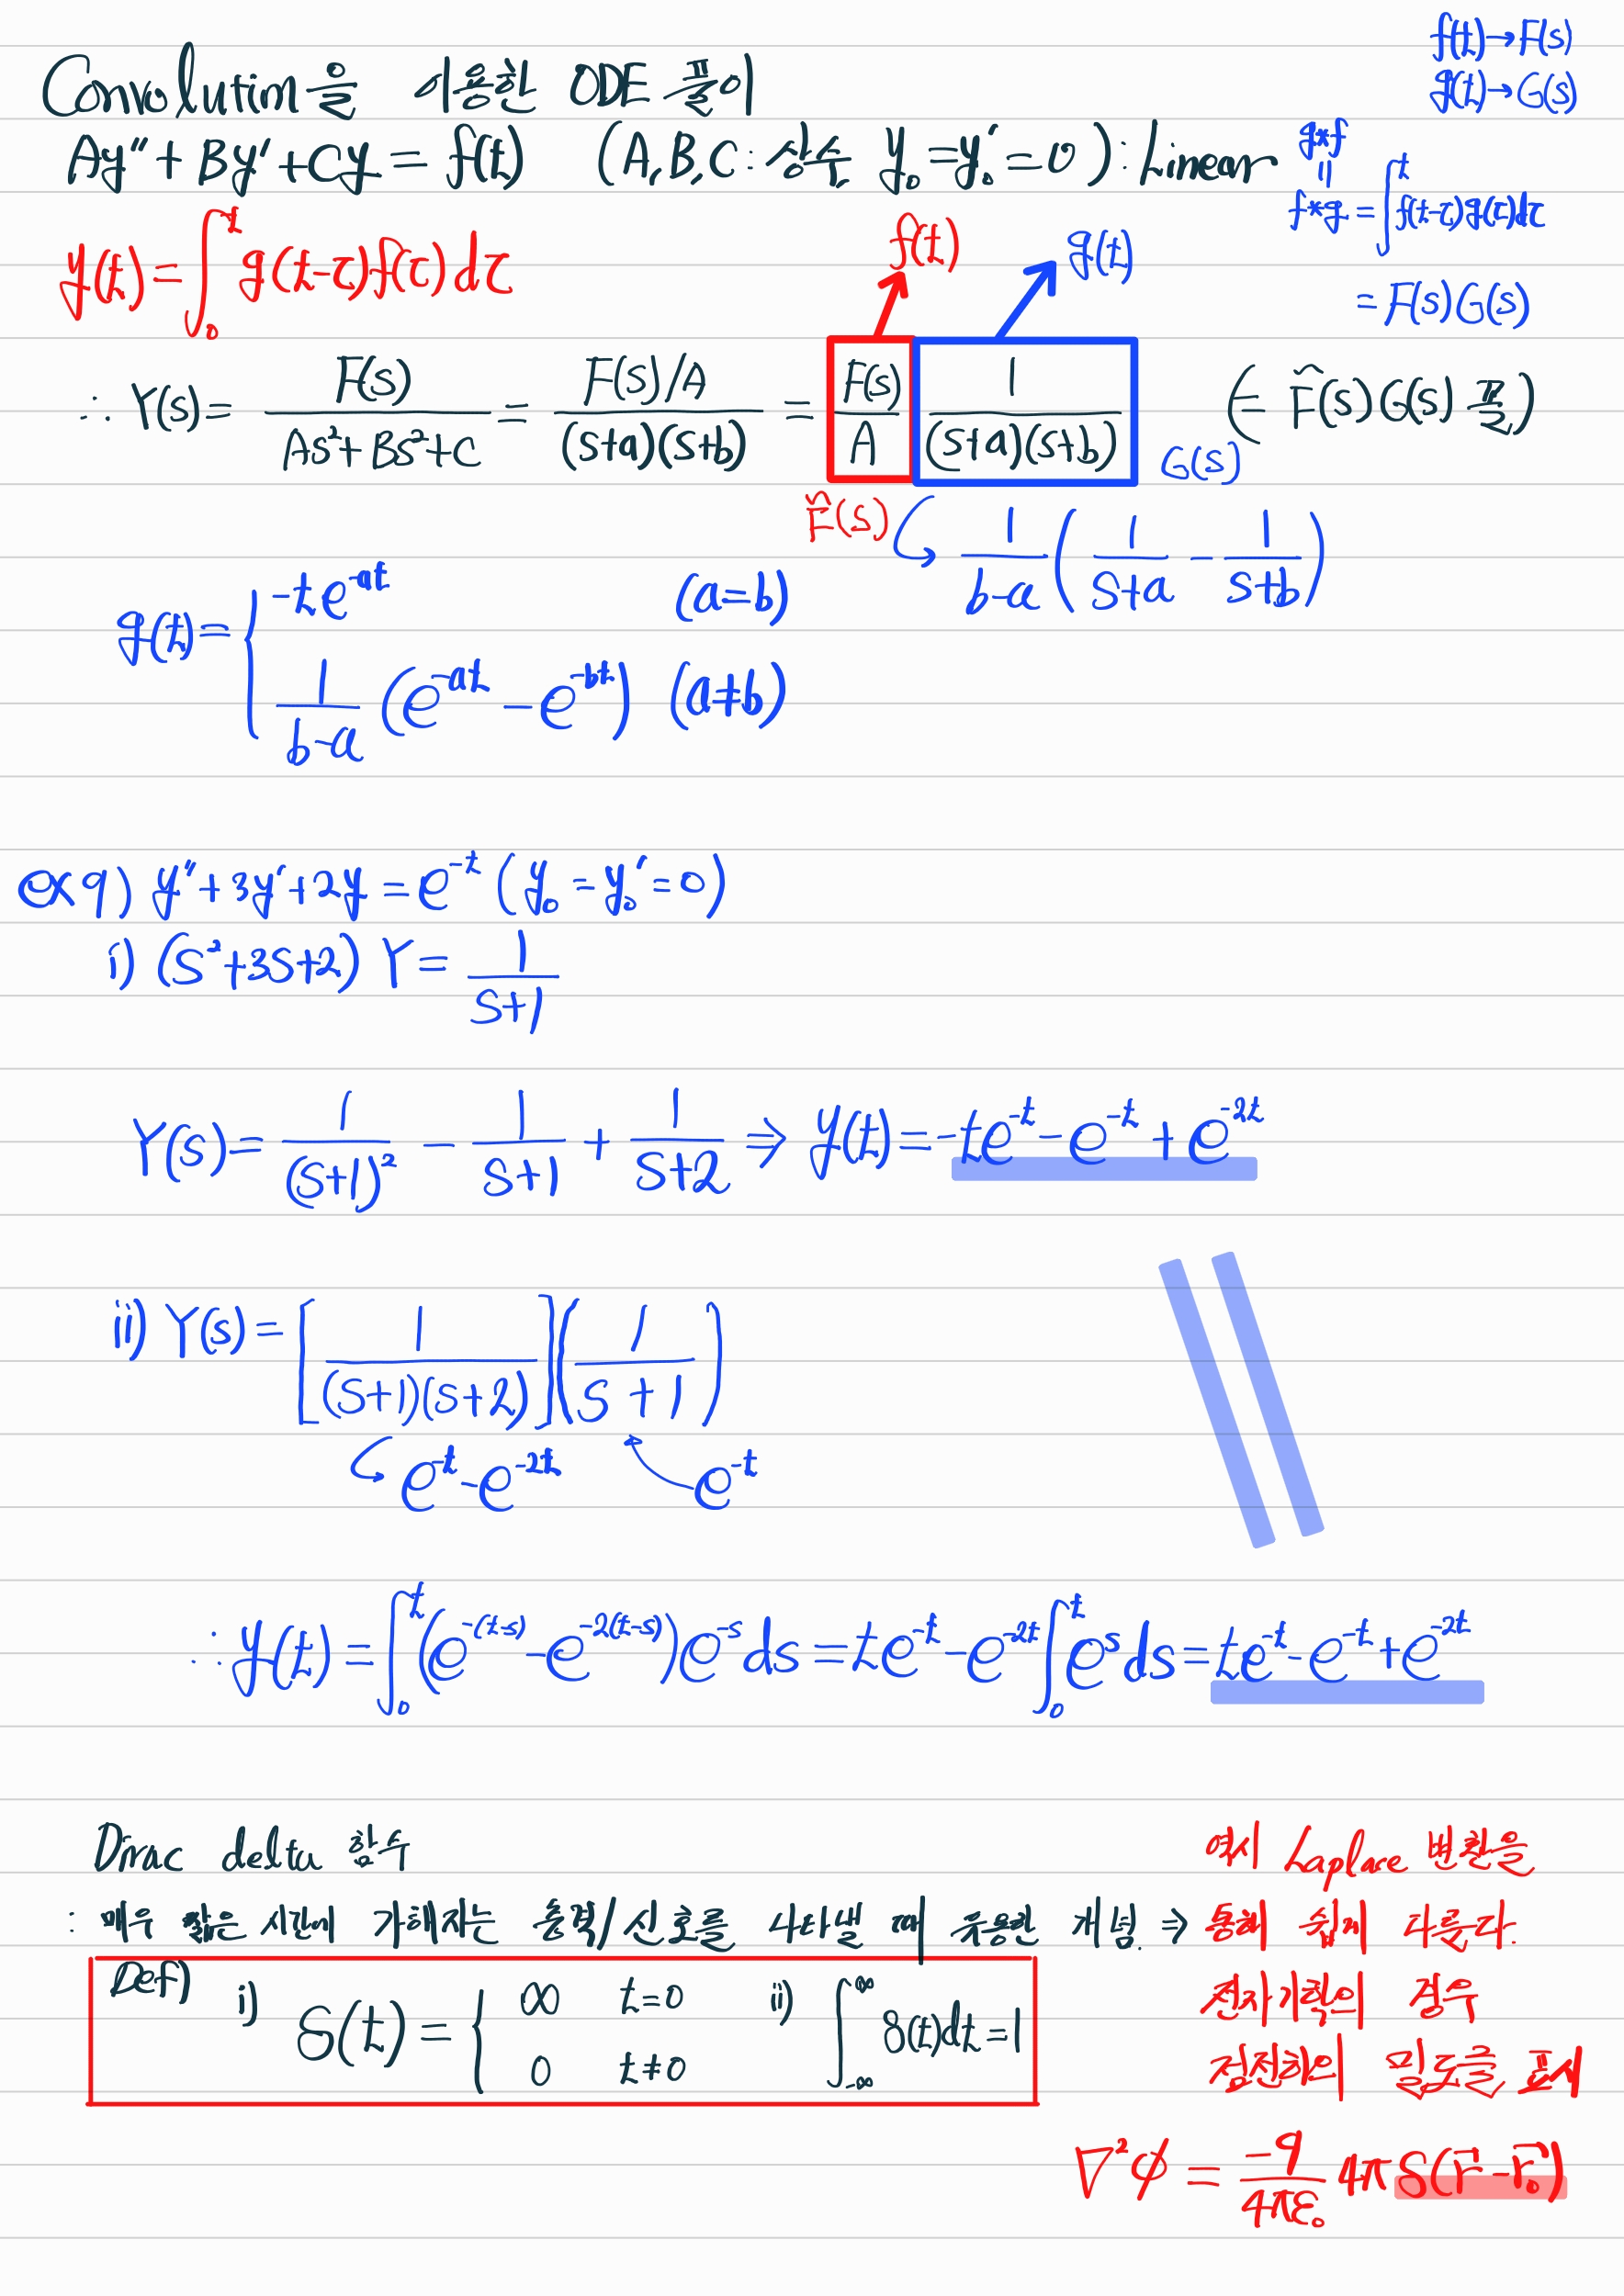 Convolution을 이용한 ODE 풀이
f(t)→F(s)
g(t)→G(s)
Ay″ + By′ + Cy = f(t) (A, B, C : 상수 y₀ = y₀′ = 0) : Linear
g*f
=
f*g = ∫₀ᵗ f(t-τ)g(τ)dτ
= F(s)G(s)
y(t) = ∫₀ᵗ g(t-τ)f(τ)dτ
f(t) g(t)
∴ Y(s) = F(s)/(As²+Bs²+C) = (F(s)/A)/((s+a)(s+b)) = F(s)/A 1/((s+a)(s+b)) (← F̃(s)G(s) 꼴)
F̃(s) G(s)
1/(b-a) (1/(s+a) - 1/(s+b))
g(t) = { -te^{-at} (a=b)
1/(b-a) (e^{-at} - e^{-bt}) (a≠b)
ex 9) y″+3y′+2y = e^{-t} (y₀ = y₀′ = 0)
i) (s²+3s+2) Y = 1/(s+1)
Y(s) = 1/(s+1)² - 1/(s+1) + 1/(s+2) ⇒ y(t) = -te^{-t} - e^{-t} + e^{-2t}
ii) Y(s) = [1/((s+1)(s+2))](1/(s+1))
e^{-t} - e^{-2t} e^{-t}
∴ y(t) = ∫₀ᵗ (e^{-(t-s)} - e^{-2(t-s)})e^{-s} ds = te^{-t} - e^{-2t} ∫₀ᵗ e^s ds = te^{-t} - e^{-t} + e^{-2t}
Dirac delta 함수
: 매우 짧은 시간에 가해지는 충격/신호를 나타낼 때 유용한 개념. ⇒
역시 Laplace 변환을
통해 쉽게 다룬다.
전자기학의 경우
점전하의 밀도를 표시
Def) i) δ(t) = { ∞ t=0
0 t≠0
ii) ∫_{-∞}^{∞} δ(t)dt = 1
∇²φ = -q/(4πε₀) 4πδ(r⃗ - r⃗₀)